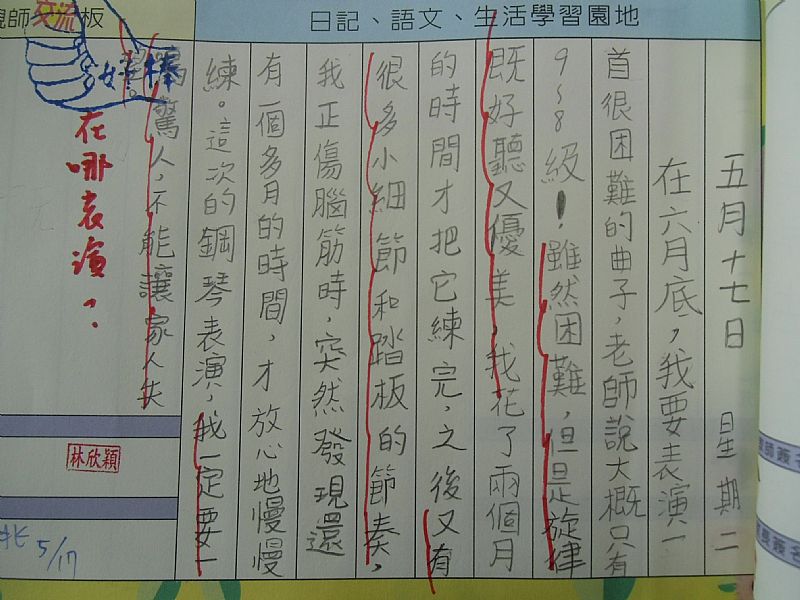 親師交流板
日記、語文、生活學習園地
五月十七日 星期二
在六月底，我要表演一
首很困難的曲子，老師說大概只有
9~8級！，雖然困難，但是旋律
既好聽又優美，我花了兩個月
的時間才把它練完，之後又有
很多小細節和踏板的節奏，
我正傷腦筋時，突然發現還
有一個多月的時間，才放心地慢慢
練。這次的鋼琴表演，我一定要一
鳴驚人，不能讓家人失
望。
好棒
在哪表演？
林欣穎
5/17